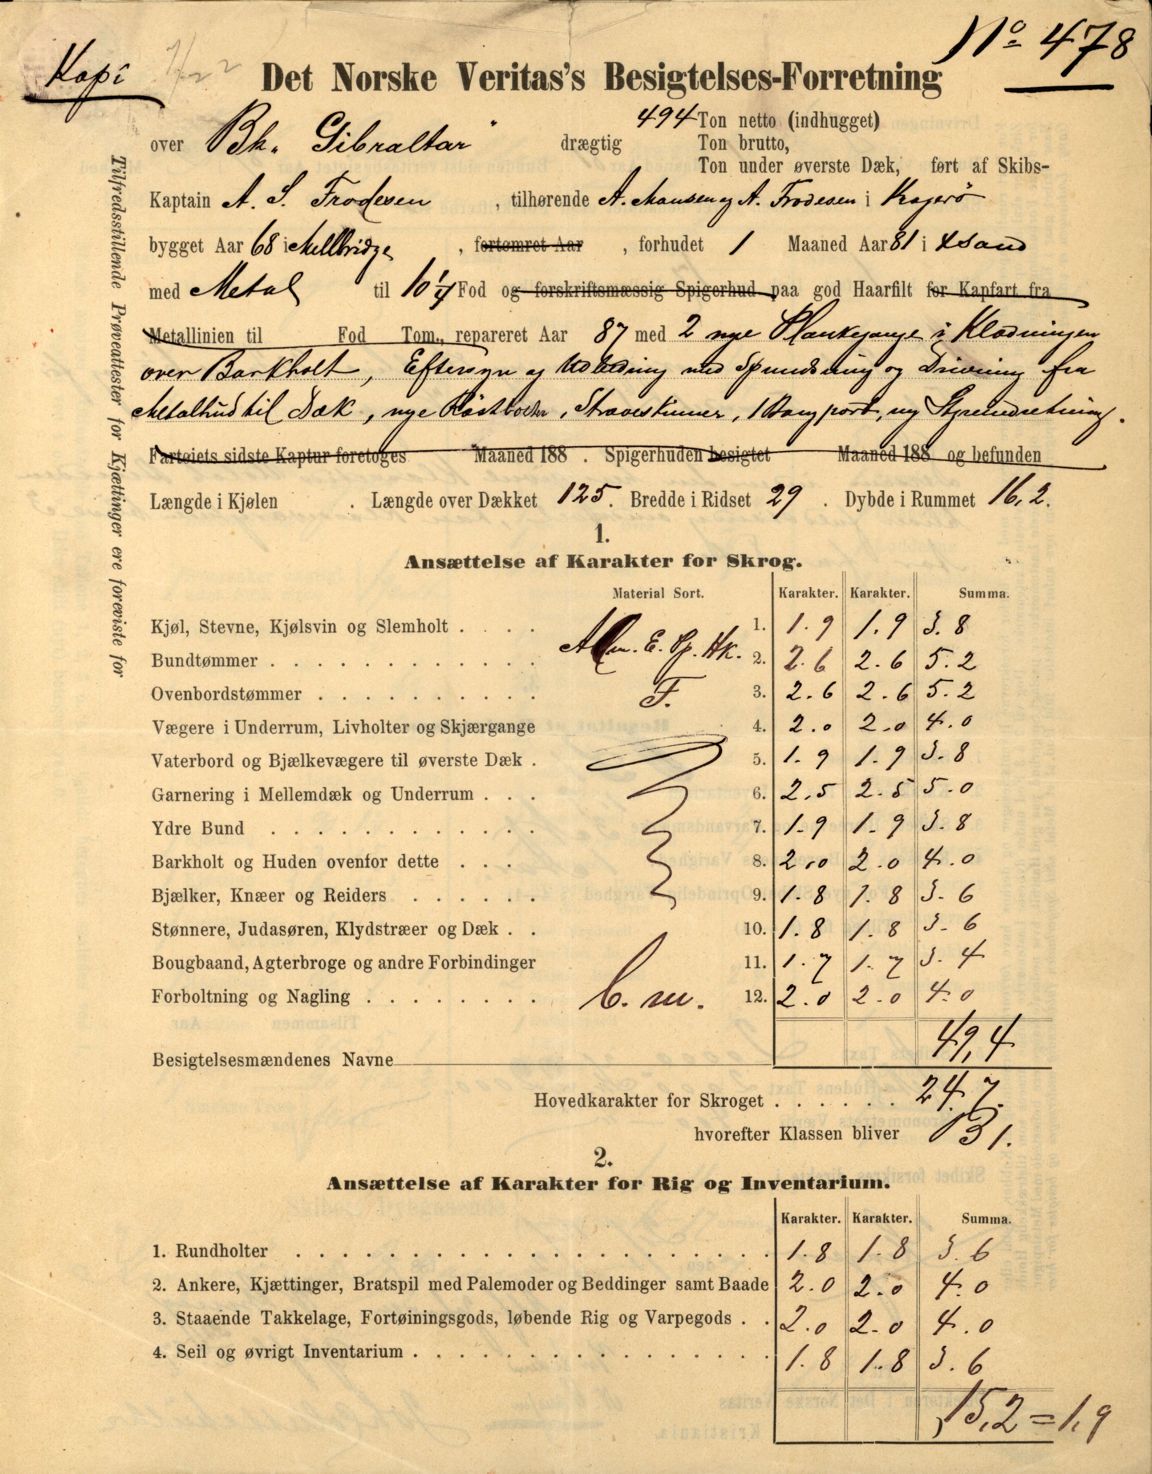 No 478
Kopi
Det Norske Veritas's Besigtelses-Forretning
over Bk. Gibraltar" drægtig 494 Ton netto (indhugget)
Ton brutto,
Ton under øverste Dæk, ført af Skibs-
Kaptain A. S. Frodesen, tilhørende A. Hansen og A. Frodesen i Kragerø
bygget Aar 68 i Millbridge, fortømret Aar , forhudet 1 Maaned Aar 81 i
med Metal til 10 1/4 Fod og forskriftsmæssig Spigerhud paa god Haarfilt for Kapfart fra
Metallinien til Fod Tom., repareret Aar 87 med 2 nye Plankegange i Klædningen
over Barkholt, Eftersyn og Udbedring med Spundsning og Drivning fra
Metalhud til Dæk, nye Røstbolte, Stræveskinner, 1 Baugport, ny Styreindretning.
Fartøiets sidste Kaptur foretoges Maaned 188 . Spigerhuden besigtet Maaned 188 og befunden
Længde i Kjølen . Længde over Dækket 125. Bredde i Ridset 29 . Dybde i Rummet 16,2.
Tilfredsstillende Prøveattester for Kjættinger ere foreviste for
1.
Ansættelse af Karakter for Skrog.
Material Sort. Karakter. Karakter. Summa.
Kjøl, Stevne, Kjølsvin og Slemholt . . . . 1. 1.9 1.9 3.8
Alm. E. Hk.
Bundtømmer . . . . . . . . . . . . 2. 2.6 2.6 5.2
Ovenbordstømmer . . . . . . . . . . F. 3. 2.6 2.6 5.2
Vægere i Underrum, Livholter og Skjærgange 4. 2.0 2.0 4.0
Vaterbord og Bjælkevægere til øverste Dæk . 5. 1.9 1.9 3.8
Garnering i Mellemdæk og Underrum . . . 6. 2.5 2.5 5.0
Ydre Bund . . . . . . . . . . . . 7. 1.9 1.9 3.8
Barkholt og Huden ovenfor dette . . . 8. 2.0 2.0 4.0
Bjælker, Knæer og Reiders . . . . . . 9. 1.8 1.8 3.6
Stønnere, Judasøren, Klydstræer og Dæk . . 10. 1.8 1.8 3.6
Bougbaand, Agterbroge og andre Forbindinger 11. 1.7 1.7 3.4
Forboltning og Nagling . . . . . . . . C. m. 12. 2.0 2.0 4.0
49,4
Besigtelsesmændenes Navne
Hovedkarakter for Skroget . . . . . . 24.7.
hvorefter Klassen bliver B 1.
2.
Ansættelse af Karakter for Rig og Inventarium.
Karakter. Karakter. Summa.
1. Rundholter . . . . . . . . . . . . 1.8 1.8 3.6
2. Ankere, Kjættinger, Bratspil med Palemoder og Beddinger samt Baade 2.0 2.0 4.0
3. Staaende Takkelage, Fortøiningsgods, løbende Rig og Varpegods . . 2.0 2.0 4.0
4. Seil og øvrigt Inventarium . . . . . . . . . . 1.8 1.8 3.6
15,2 = 1,9